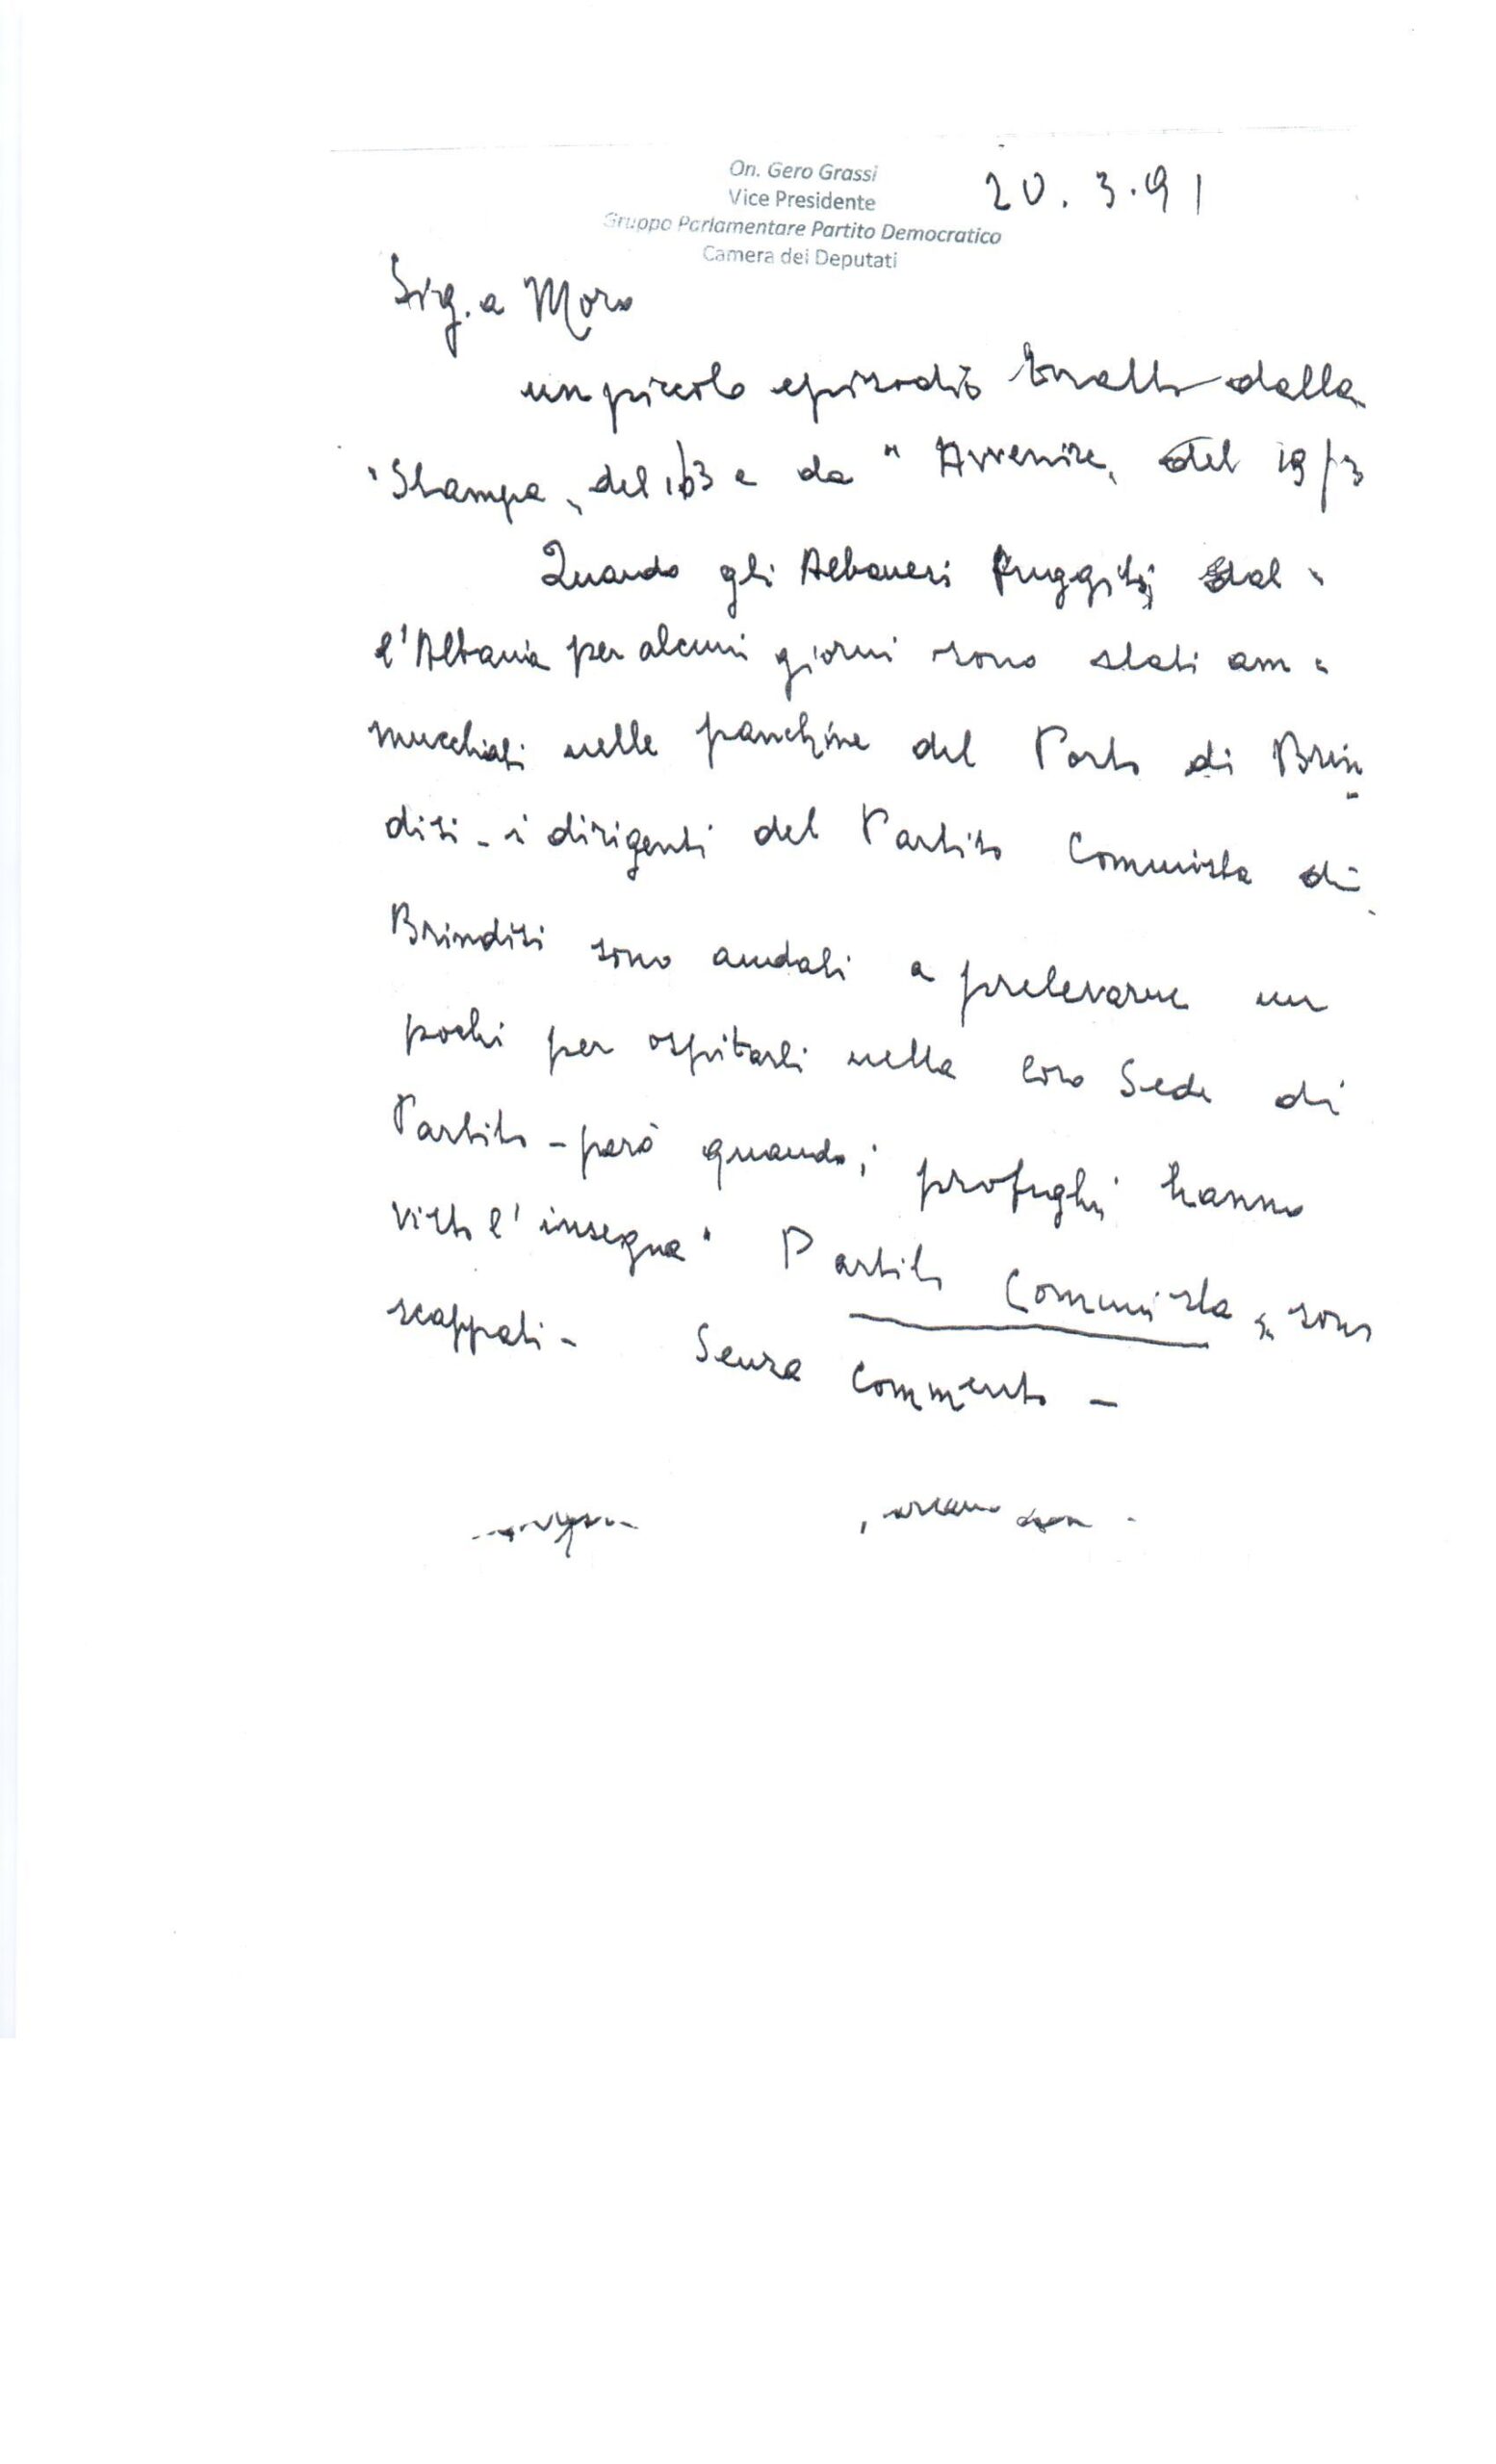 On. Gero Grassi
Vice Presidente
20.3.91
Gruppo Parlamentare Partito Democratico
Camera dei Deputati
Sig.a Moro
un piccolo episodio tratto dalla
"Stampa" del 16/3 e da "Avvenire" del 19/3
Quando gli Albanesi fuggiti dal-
l'Albania per alcuni giorni sono stati am=
mucchiati nelle panchine del Porto di Brin
disi - i dirigenti del Partito Comunista di
Brindisi sono andati a prelevarne un
pochi per ospitarli nella loro Sede di
Partito - però quando i profughi hanno
visto l'insegna "Partito Comunista" sono
scappati - Senza commento -